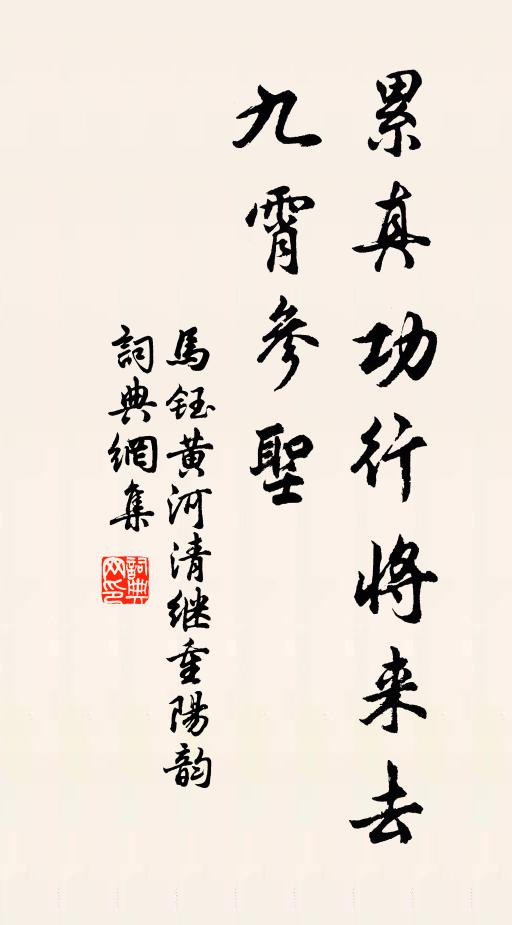 累真功行将来去
九霄參聖
馬鈺黄河清继重陽韵
詞典網集
詞典网印